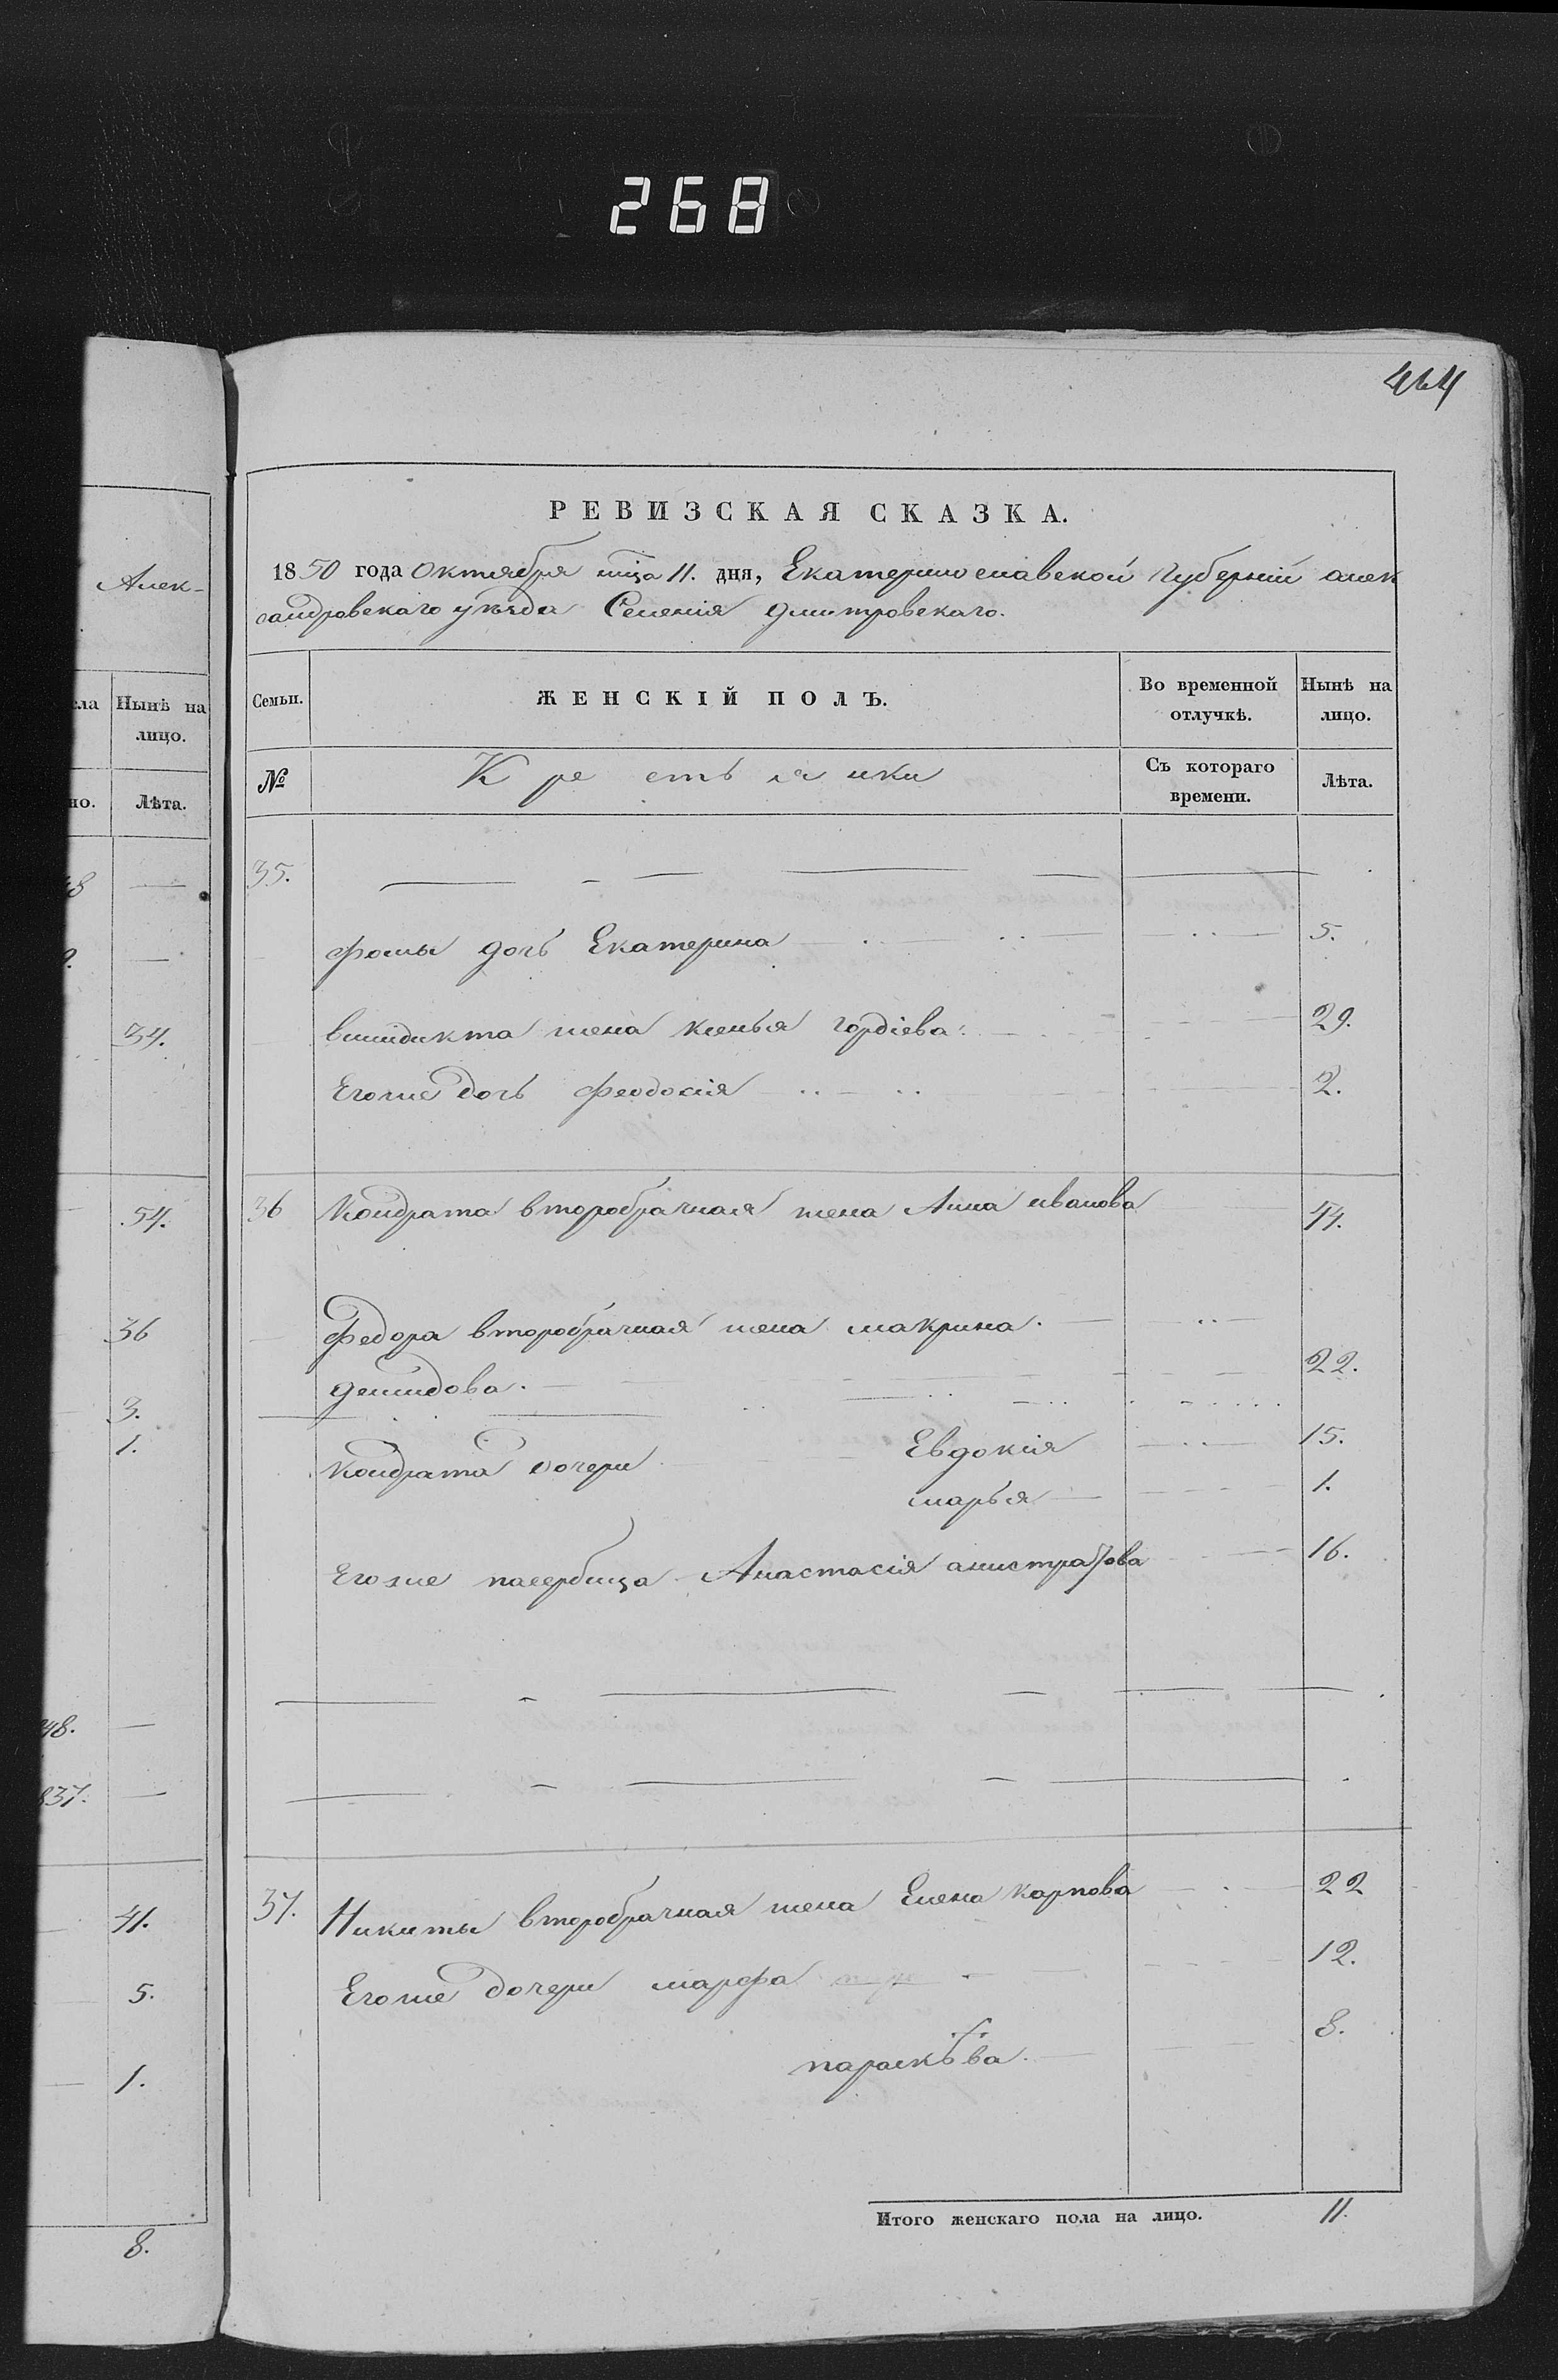 268
464
Алек-
РЕВИЗСКАЯ СКАЗКА.
1850 года Октября мца 11. дня, Екатеринославской Губерніи алек
сандровскаго уѣзда Селенія дмитровскаго.
ла Нынѣ на
лицо.
но. Лѣта.
Семьи. ЖЕНСКІЙ ПОЛЪ. Во временной отлучкѣ. Нынѣ на лицо.
№ Крестьянки Съ котораго времени. Лѣта.
48 —
—
34.
54.
36
3.
1.
48. —
837. —
41.
5.
1.
8.
35.
фомы дочь Екатерина 5.
винидикта жена ксенья гордіева 29.
Егоже дочь феодосія 2.
36 Кондрата второбрачная жена Анна иванова 44.
Федора второбрачная жена макрина
демидова. 22.
Кондрата дочери Евдокія 15.
марья 1.
Егоже пасербица Анастасія 16.
37. Никиты второбрачная жена Елена карпова 22
Егоже дочери марфа 12.
парасковва. 8.
Итого женскаго пола на лицо. 11.